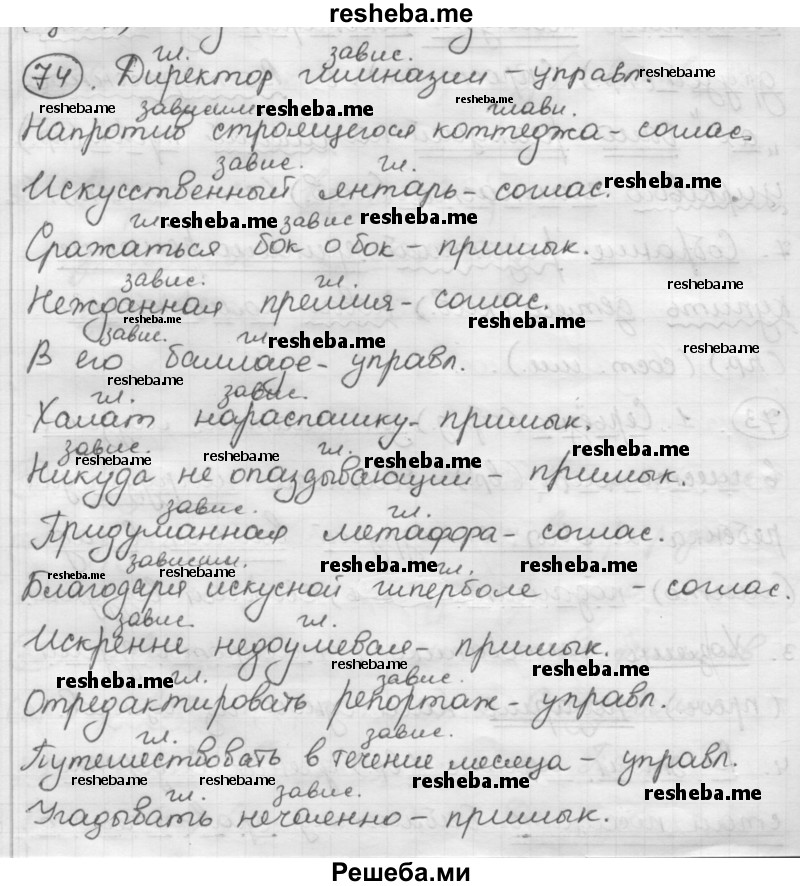 resheba.me
гл. завис.
74. Директор гимназии - управл. resheba.me
resheba.me зависим resheba.me resheba.me главн.
Напротив строящегося коттеджа - соглас.
завис. гл.
Искусственный янтарь - соглас. resheba.me
гл resheba.me завис resheba.me
Сражаться бок о бок - примык.
завис. гл. resheba.me
Нежданная премия - соглас.
resheba.me resheba.me
завис. гл resheba.me resheba.me
В его балладе - управл.
resheba.me
гл. завис.
Халат нараспашку - примык.
завис. гл.
resheba.me resheba.me resheba.me resheba.me
Никуда не опаздывающий - примык.
завис. гл.
Придуманная метафора - соглас.
зависим. гл.
resheba.me resheba.me resheba.me resheba.me
Благодаря искусной гиперболе - соглас.
завис. гл.
Искренне недоумевая - примык.
resheba.me
resheba.me гл. завис. resheba.me
Отредактировать репортаж - управл.
гл. завис.
Путешествовать в течение месяца - управл.
resheba.me resheba.me resheba.me
гл. завис. resheba.me
Угадывать нечаянно - примык.
Решеба.ми